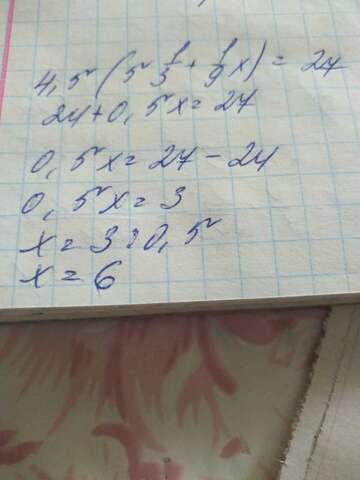 4,5 (5 1/3 + 1/9 x) = 27
24 + 0,5x = 27
0,5x = 27 - 24
0,5x = 3
x = 3 : 0,5
x = 6